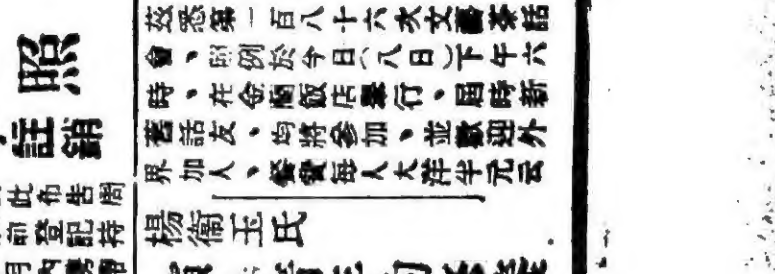 照
註銷
此布告周
前登記持
茲悉第一百八十六次文藝茶話
會、照例於今日(八日)下午六
時、在金閣飯店舉行、屆時新
舊話友、均將參加、並歡迎外
界加入、餐費每人大洋半元云
楊衛玉氏